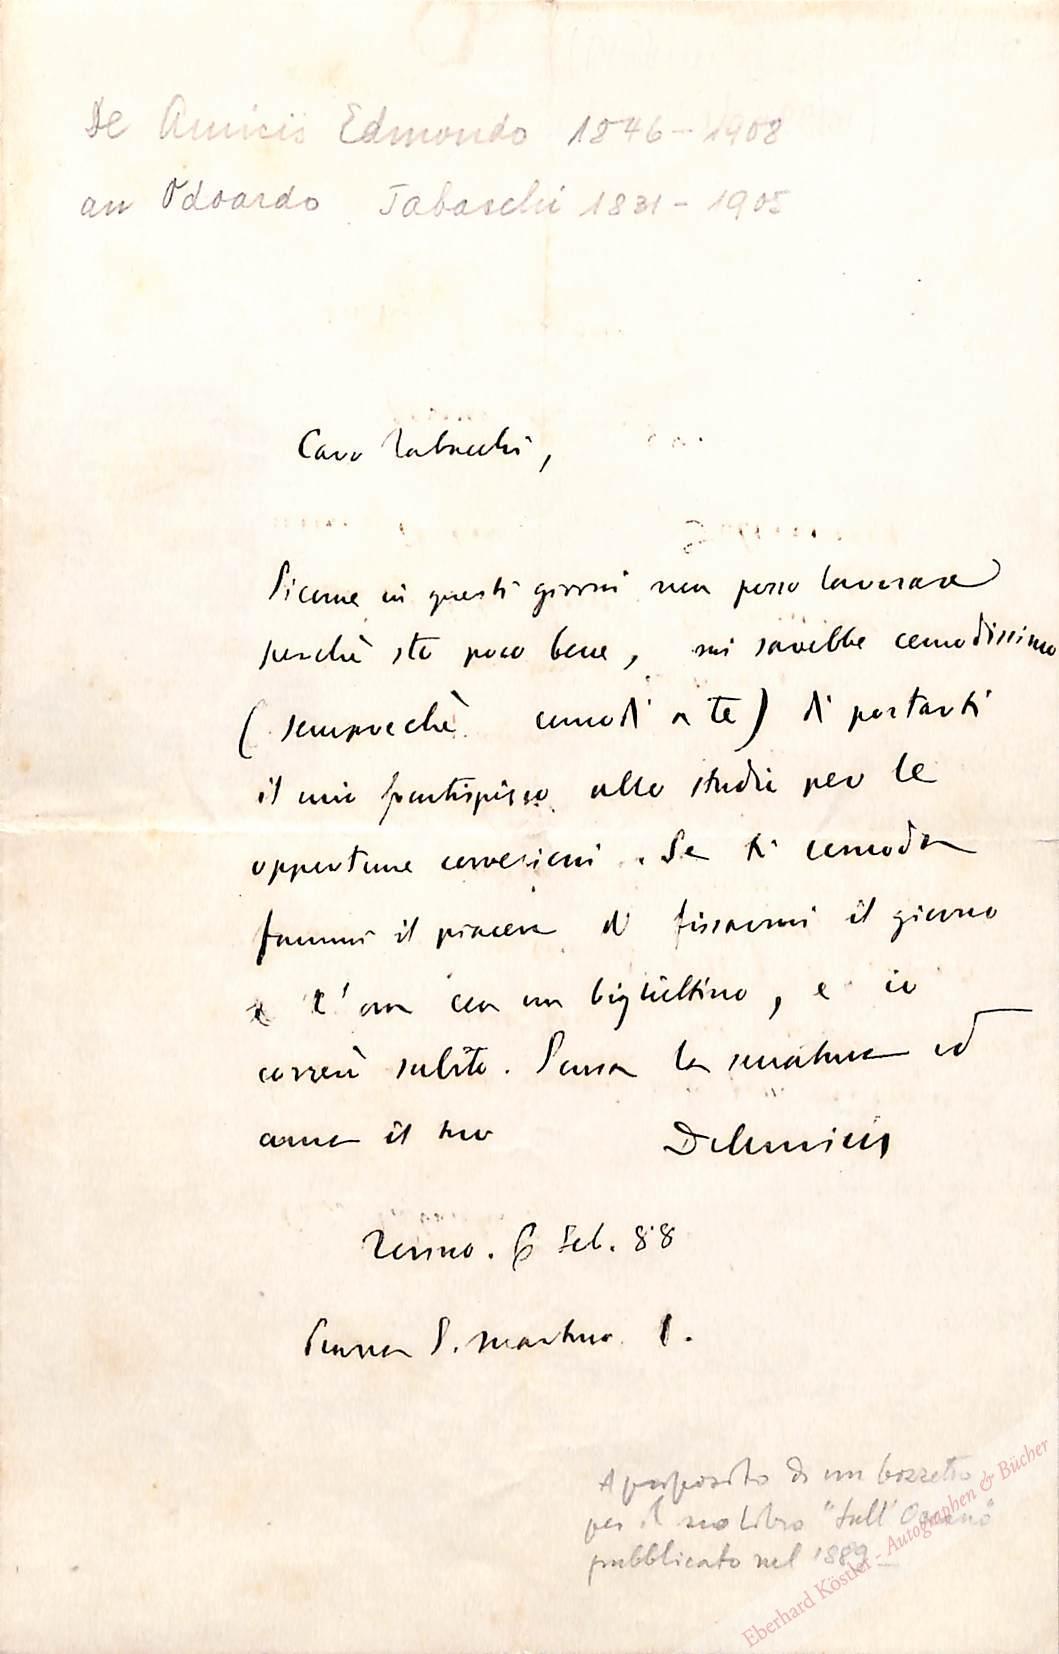 De Amicis Edmondo 1846-1908
an Odoardo Tabaschi 1831-1905
Caro Tabacchi,
Siccome in questi giorni non posso lavorare
perchè sto poco bene, mi sarebbe comodissimo
(sempreché comodi a te) di portarti
il mio frontispizio allo studio per le
opportune correzioni. Se ti comoda
fammi il piacere di fissarmi il giorno
e l'ora con un bigliettino, e io
correrò subito. Scusa la seccatura ed
ama il tuo DeAmicis
Torino. 6 Feb. 88
Piazza S. Martino 1.
A proposito di un bozzetto
per il suo libro "Sull'Oceano"
pubblicato nel 1889
Eberhard Köstler - Autographen & Bücher